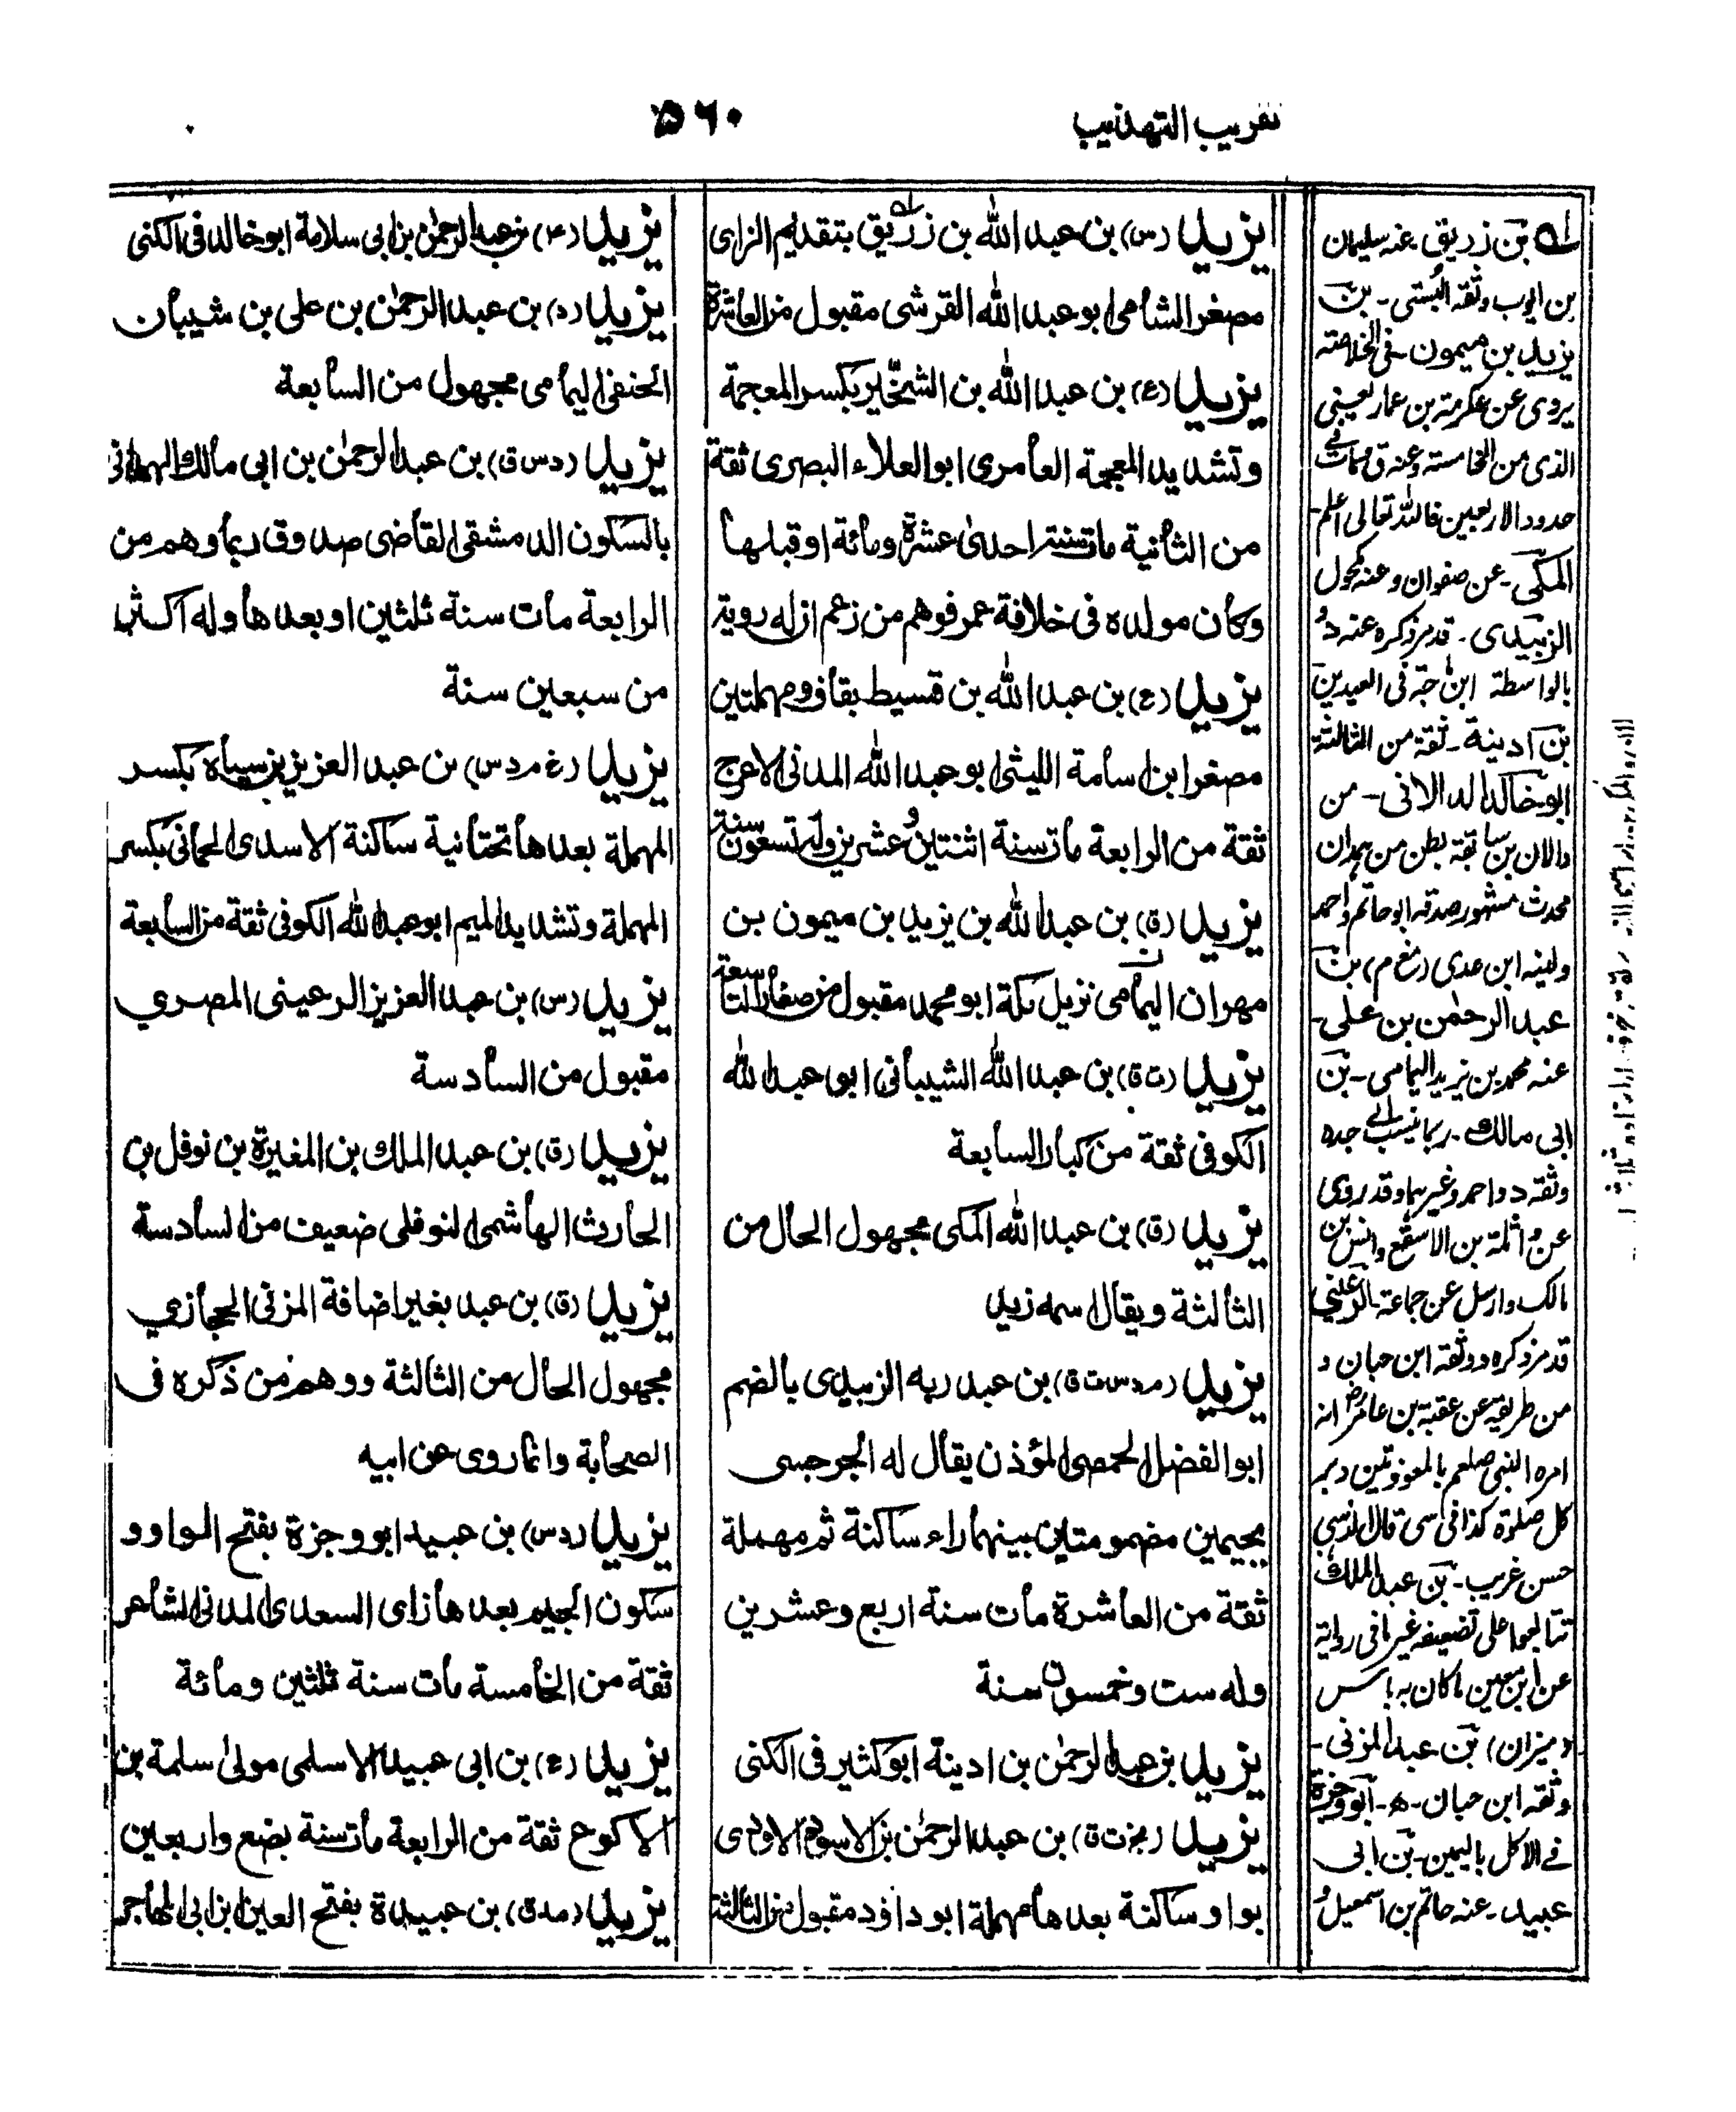 تقريب التهذيب
۵۶۰
يزيد (س) بن عبد الله بن زريق بتقديم الزاى
مصغر الشامى ابو عبد الله القرشى مقبول من العاشرة
يزيد (ع) بن عبد الله بن الشخير بكسر المعجمة
وتشديد المعجمة العامرى ابو العلاء البصرى ثقة
من الثانية مات سنة احدى عشرة ومائة او قبلها
وكان مولده فى خلافة عمر فوهم من زعم ان له روية
يزيد (ع) بن عبد الله بن قسيط بقاف ومهملتين
مصغر ابن اسامة الليثى ابو عبد الله المدنى الاعرج
ثقة من الرابعة مات سنة اثنتين وعشرين وله تسعون سنة
يزيد (ق) بن عبد الله بن يزيد بن ميمون بن
مهران اليمامى نزيل مكة ابو محمد مقبول من صغار التاسعة
يزيد (ت ق) بن عبد الله الشيبانى ابو عبد الله
الكوفى ثقة من كبار السابعة
يزيد (ق) بن عبد الله المكى مجهول الحال من
الثالثة ويقال اسمه زيد
يزيد (م د س ت ق) بن عبد ربه الزبيدى بالضم
ابو الفضل الحمصى المؤذن يقال له الجرجسى
بجيمين مضمومتين بينهما راء ساكنة ثم مهملة
ثقة من العاشرة مات سنة اربع وعشرين
وله ست وخمسون سنة
يزيد بن عبد الرحمٰن بن ادينة ابو كثير فى الكنى
يزيد (بخ ت ق) بن عبد الرحمٰن بن الاسود الاودى
بواو ساكنة بعدها مهملة ابو داؤد مقبول من الثالثة
يزيد (۴) بن عبد الرحمٰن بن ابى سلامة ابو خالد فى الكنى
يزيد (د) بن عبد الرحمٰن بن على بن شيبان
الحنفى اليمامى مجهول من السابعة
يزيد (د س ق) بن عبد الرحمٰن بن ابى مالك الهمدانى
بالسكون الدمشقى القاضى صدوق ربما وهم من
الرابعة مات سنة ثلثين او بعدها وله اكثر
من سبعين سنة
يزيد (خ م د س) بن عبد العزيز بن سياه بكسر
المهملة بعدها تحتانية ساكنة الاسدى الحمانى بكسر
المهملة وتشديد الميم ابو عبد الله الكوفى ثقة من السابعة
يزيد (س) بن عبد العزيز الرعينى المصري
مقبول من السادسة
يزيد (ق) بن عبد الملك بن المغيرة بن نوفل بن
الحارث الهاشمى النوفلى ضعيف من السادسة
يزيد (ق) بن عبد بغير اضافة المزنى الحجازي
مجهول الحال من الثالثة ووهم من ذكره فى
الصحابة وانما روى عن ابيه
يزيد (د س) بن عبيد ابو وجزة بفتح الواو و
سكون الجيم بعدها زاى السعدى المدنى الشاعر
ثقة من الخامسة مات سنة ثلثين ومائة
يزيد (ع) بن ابى عبيد الاسلمى مولى سلمة بن
الاكوع ثقة من الرابعة مات سنة بضع واربعين
يزيد (مد ق) بن عبيدة بفتح العين ابن ابى المهاجر
له بن زريق۔ عنه سليمان
بن ايوب وثقه البستى۔ بن
يزيد بن ميمون۔ فى الخلاصة
يروى عن عكرمة بن عمار يعنى
الذى من الخامسة وعنه ق مات فى
حدود الاربعين فالله تعالى اعلم۔
المكى۔ عن صفوان وعنه مكحول
الزبيدى۔ قد مر ذكره عنه د و
بالواسطة ابن ماجة فى العيدين
بن ادينة۔ ثقة من الثالثة
ابو خالد الدالانى۔ من
دالان بن سابقة بطن من همدان
محدث مشهور صدقه ابو حاتم واحمد
ولينه ابن عدى (مغ م) بن
عبد الرحمٰن بن على۔
عنه محمد بن يزيد اليمامى۔ بن
ابى مالك۔ ربما ينسب الى جده
وثقه د واحمد وغيرهما وقد روى
عن واثلة بن الاسقع وانس بن
مالك وارسل عن جماعة۔ الرعينى
قد مر ذكره ووثقه ابن حبان و
من طريقه عن عقبة بن عامر انه
امره النبى صلعم بالمعوذتين دبر
كل صلوة كذا فى س قال الترمذى
حسن غريب۔ بن عبد الملك
تتابعوا على تضعيفه غير ما فى رواية
عن ابن معين ما كان به باس
(ميزان) بن عبد المزنى۔
وثقه ابن حبان۔ ه۔ ابو وجزة
فى الاكل باليمين۔ بن ابى
عبيد۔ عنه حاتم بن اسمعيل و